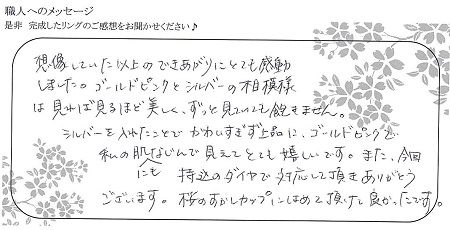 職人へのメッセージ
是非 完成したリングのご感想をお聞かせください♪
想像していた以上のできあがりにとても感動
しました。ゴールドピンクとシルバーの相模様
は見れば見るほど美しく、ずっと見ていても飽きません。
シルバーを入れたことでかわいすぎず上品に、ゴールドピンクで
私の肌になじんで見えてとても嬉しいです。また、今回
にも 持込のダイヤで対応して頂きありがとう
ございます。桜のすかしカップにはめて頂けて良かったです。